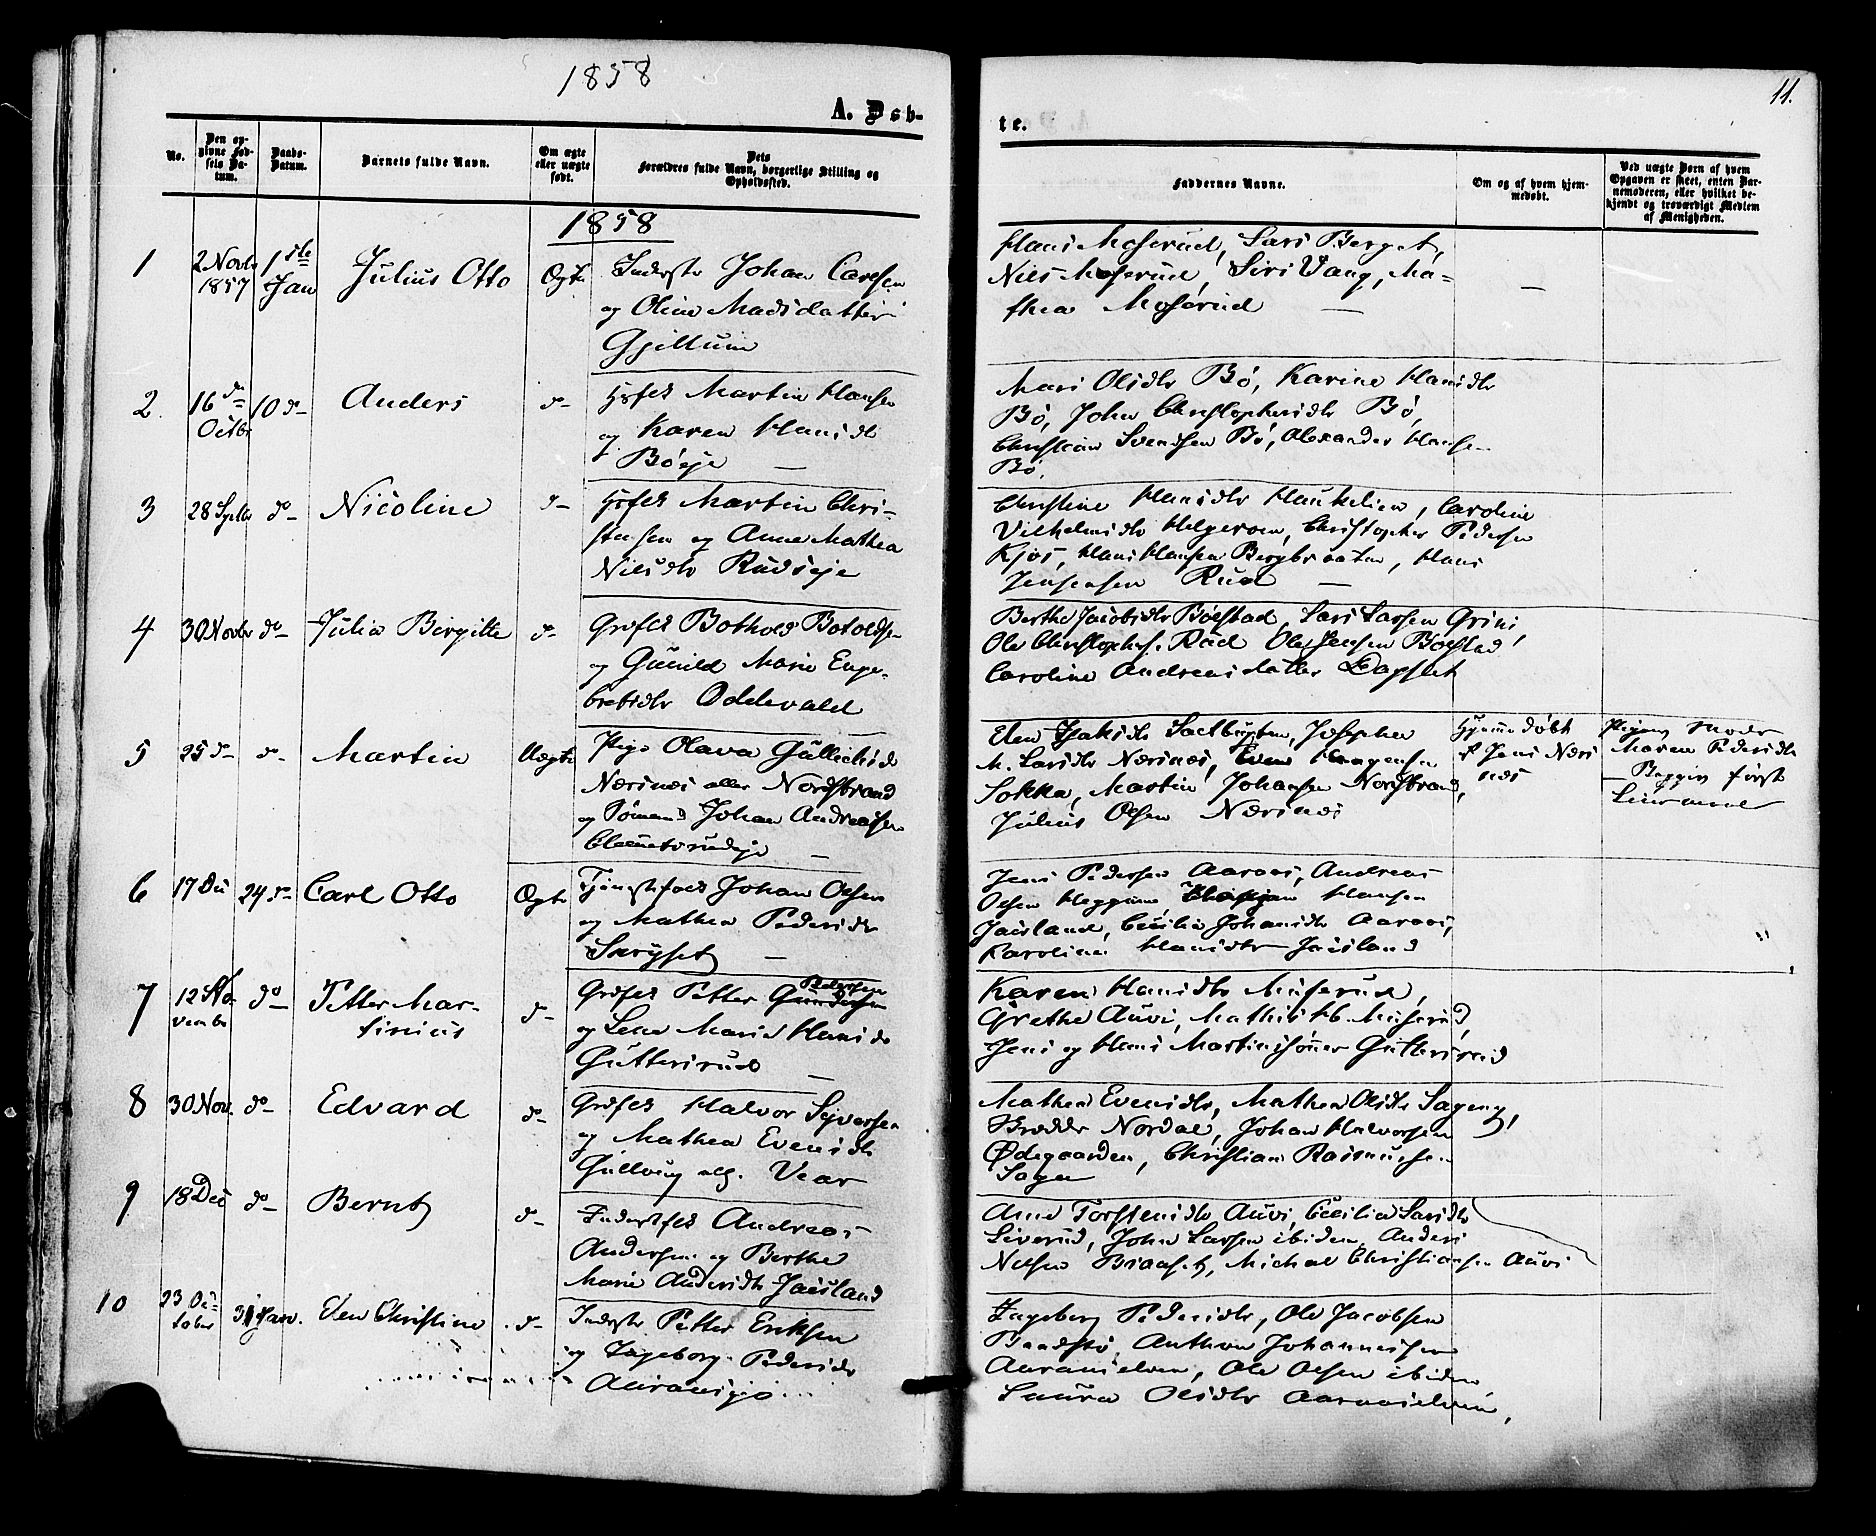 1858
11.
A. Døb-
te.
No.
Den op-
givne Fød-
sels Da-
tum.
Daabs-
Datum.
Barnets fulde Navn.
Om ægte
eller uægte
født.
Dets
Forældres fulde Navn, borgerlige Stilling og
Opholdssted.
Faddernes Navne.
Om og af hvem hjem-
medøbt.
Ved uægte Børn af hvem
Opgaven er skeet, enten Bar-
nemoderen, eller hvilket be-
kjendt og troværdigt Medlem
af Menigheden.
1858
1
2 Novbr
1857
1ste
Jan
Julius Otto
Ægte
Inderste Johan Carlsen
og Oline Madsdatter
Gjellum
Hans Moserud, Lars Berget,
Nils Moserud, Siri Vang, Ma-
thea Moserud —
—
2.
16 de
Octbr
10 do
Anders
do
Hsfk Martin Hansen
og Karen Hansdtr
Bøeje —
Mari Olsdtr Bø, Karine Hansdtr
Bø, John Christophersdtr Bø,
Christian Svendsen Bø, Alexander Hansen
Bø
3
28 Septbr
do
Nicoline
do
Hsfk Martin Chri-
stensen og Anne Mathea
Nilsdtr Rudseje
Christine Hansdtr Haukelien, Caroline
Vilhelmsdtr Helgeroen, Christopher Pedersen
Kjos, Hans Hansen Bergbraaten, Hans
Jensensen Rud —
4
30 Novbr
do
Julia Birgitte
do
Grdfk Bothold Botoldsen
og Gunild Marie Enge-
bretsdtr Oddevald
Berthe Jacobsdtr Bølstad, Lars Larsen Grini
Ole Christophs. Rud Ole Jensen Bølstad
Caroline Andreasdatter Dapslet
5
25 do
do
Martin
Uægte
Pige Olava Gullichsd
Nærsnes eller Nordstrand
og Sømand Johan Andreasen
Clemetsrudeje —
M. Larsdtr Nærsnes, Even Haagensen
Sokka, Martin Johansen Nordstrand,
Julius Olsen Nærsnes
Hjemmedøbt
af Jens Nærs
nes
Pigens Moder
Maren Pedersdtr
— første
Leiermaal
6
17 De
24 do
Carl Otto
Ægte
Tjenestefolk Johan Olsen
og Mathea Pedersdtr
Skryset —
Jens Pedersen Aaraas, Andreas
Olsen Heggum, Hansen
Jaisland, Cecilia Johansdtr Aaraas,
Karoline Hansdtr Jaisland
7
12 No
vembr
do
Petter Mar-
tinius
do
Grdfk Petter Gundersen Pedersen
og Lene Marie Hansd
Guttersrud —
Karen Hansdtr Muserud,
Grethe Auvi, Mathis H. Muserud,
Jens og Hans Martinsønner Guttersrud
8
30 Nov.
do
Edvard
do
Grdfk Halvor Syversen
og Mathea Evensdtr
Gullaug alg. Vear
Mathea Evensdtr, Mathea Olsdtr Sageng,
Brede Nordal, Johan Halvorsen
Ødegaarden, Christian Rasmussen
Sagen
9
18 Dec
do
Bernt
do
Inderstfolk Andreas
Andersen og Berthe
Marie Andersdtr Jaisland
Anne Torstensdtr Auvi, Cecilia Larsdtr
Liverud, John Larsen ibidem, Anders
Nelsen Braaset, Michal Christiansen Auvi
10
23 Oc-
tober
31 Jan.
Elen Christine
do
Inderste Petter Eriksen
og Ingeborg Pedersdtr
Ingeborg Pedersdtr, Ole Jacobsen
Anthon Johannesen
Aaraaselven, Ole Olsen ibidem,
Laura Olsdtr Aaraaselven,